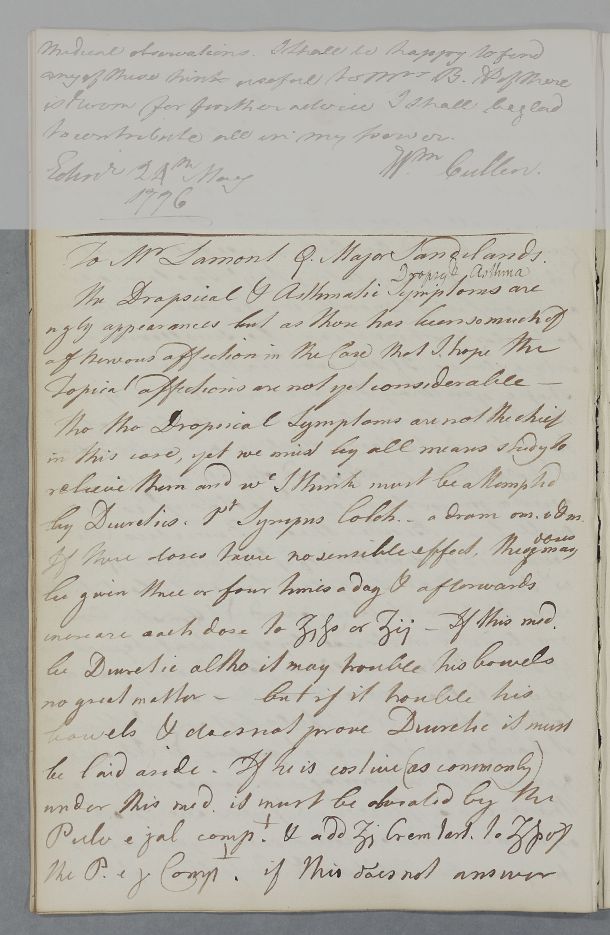 Medical observations. I shall be happy to find
any of these hints useful to Mrs B. & if there
is room for further advice I shall be glad
to contribute all in my power.
Edinr 24th May Wm Cullen.
1776
To Mr Lamont Q. Major Sandilands.
Dropsy & Asthma
The Dropsical & Asthmatic Symptoms are
ugly appearances but as there has been so much of
of nervous affection in the Case that I hope the
Topical affections are not yet considerable —
Tho the Dropsical Symptoms are not the chief
in this case, yet we must by all means study to
relieve them and wc I think must be attempted
by Diuretics. 1st Syrupus Colch. – a dram om. & m.
If these doses have no sensible effect, the doses may
be given three or four times a day & afterwards
increase each dose to ʒjſs or ʒij – If this med.
be Diuretic altho it may trouble his bowels
no great matter – but if it trouble his
bowels & does not prove Diuretic it must
be laid aside. If he is costive (as commonly)
under this med. it must be obviated by the
Pulv e jal compt. & add ʒj Crem tart. to ʒſs of
the P. e j Compt. if this does not answer